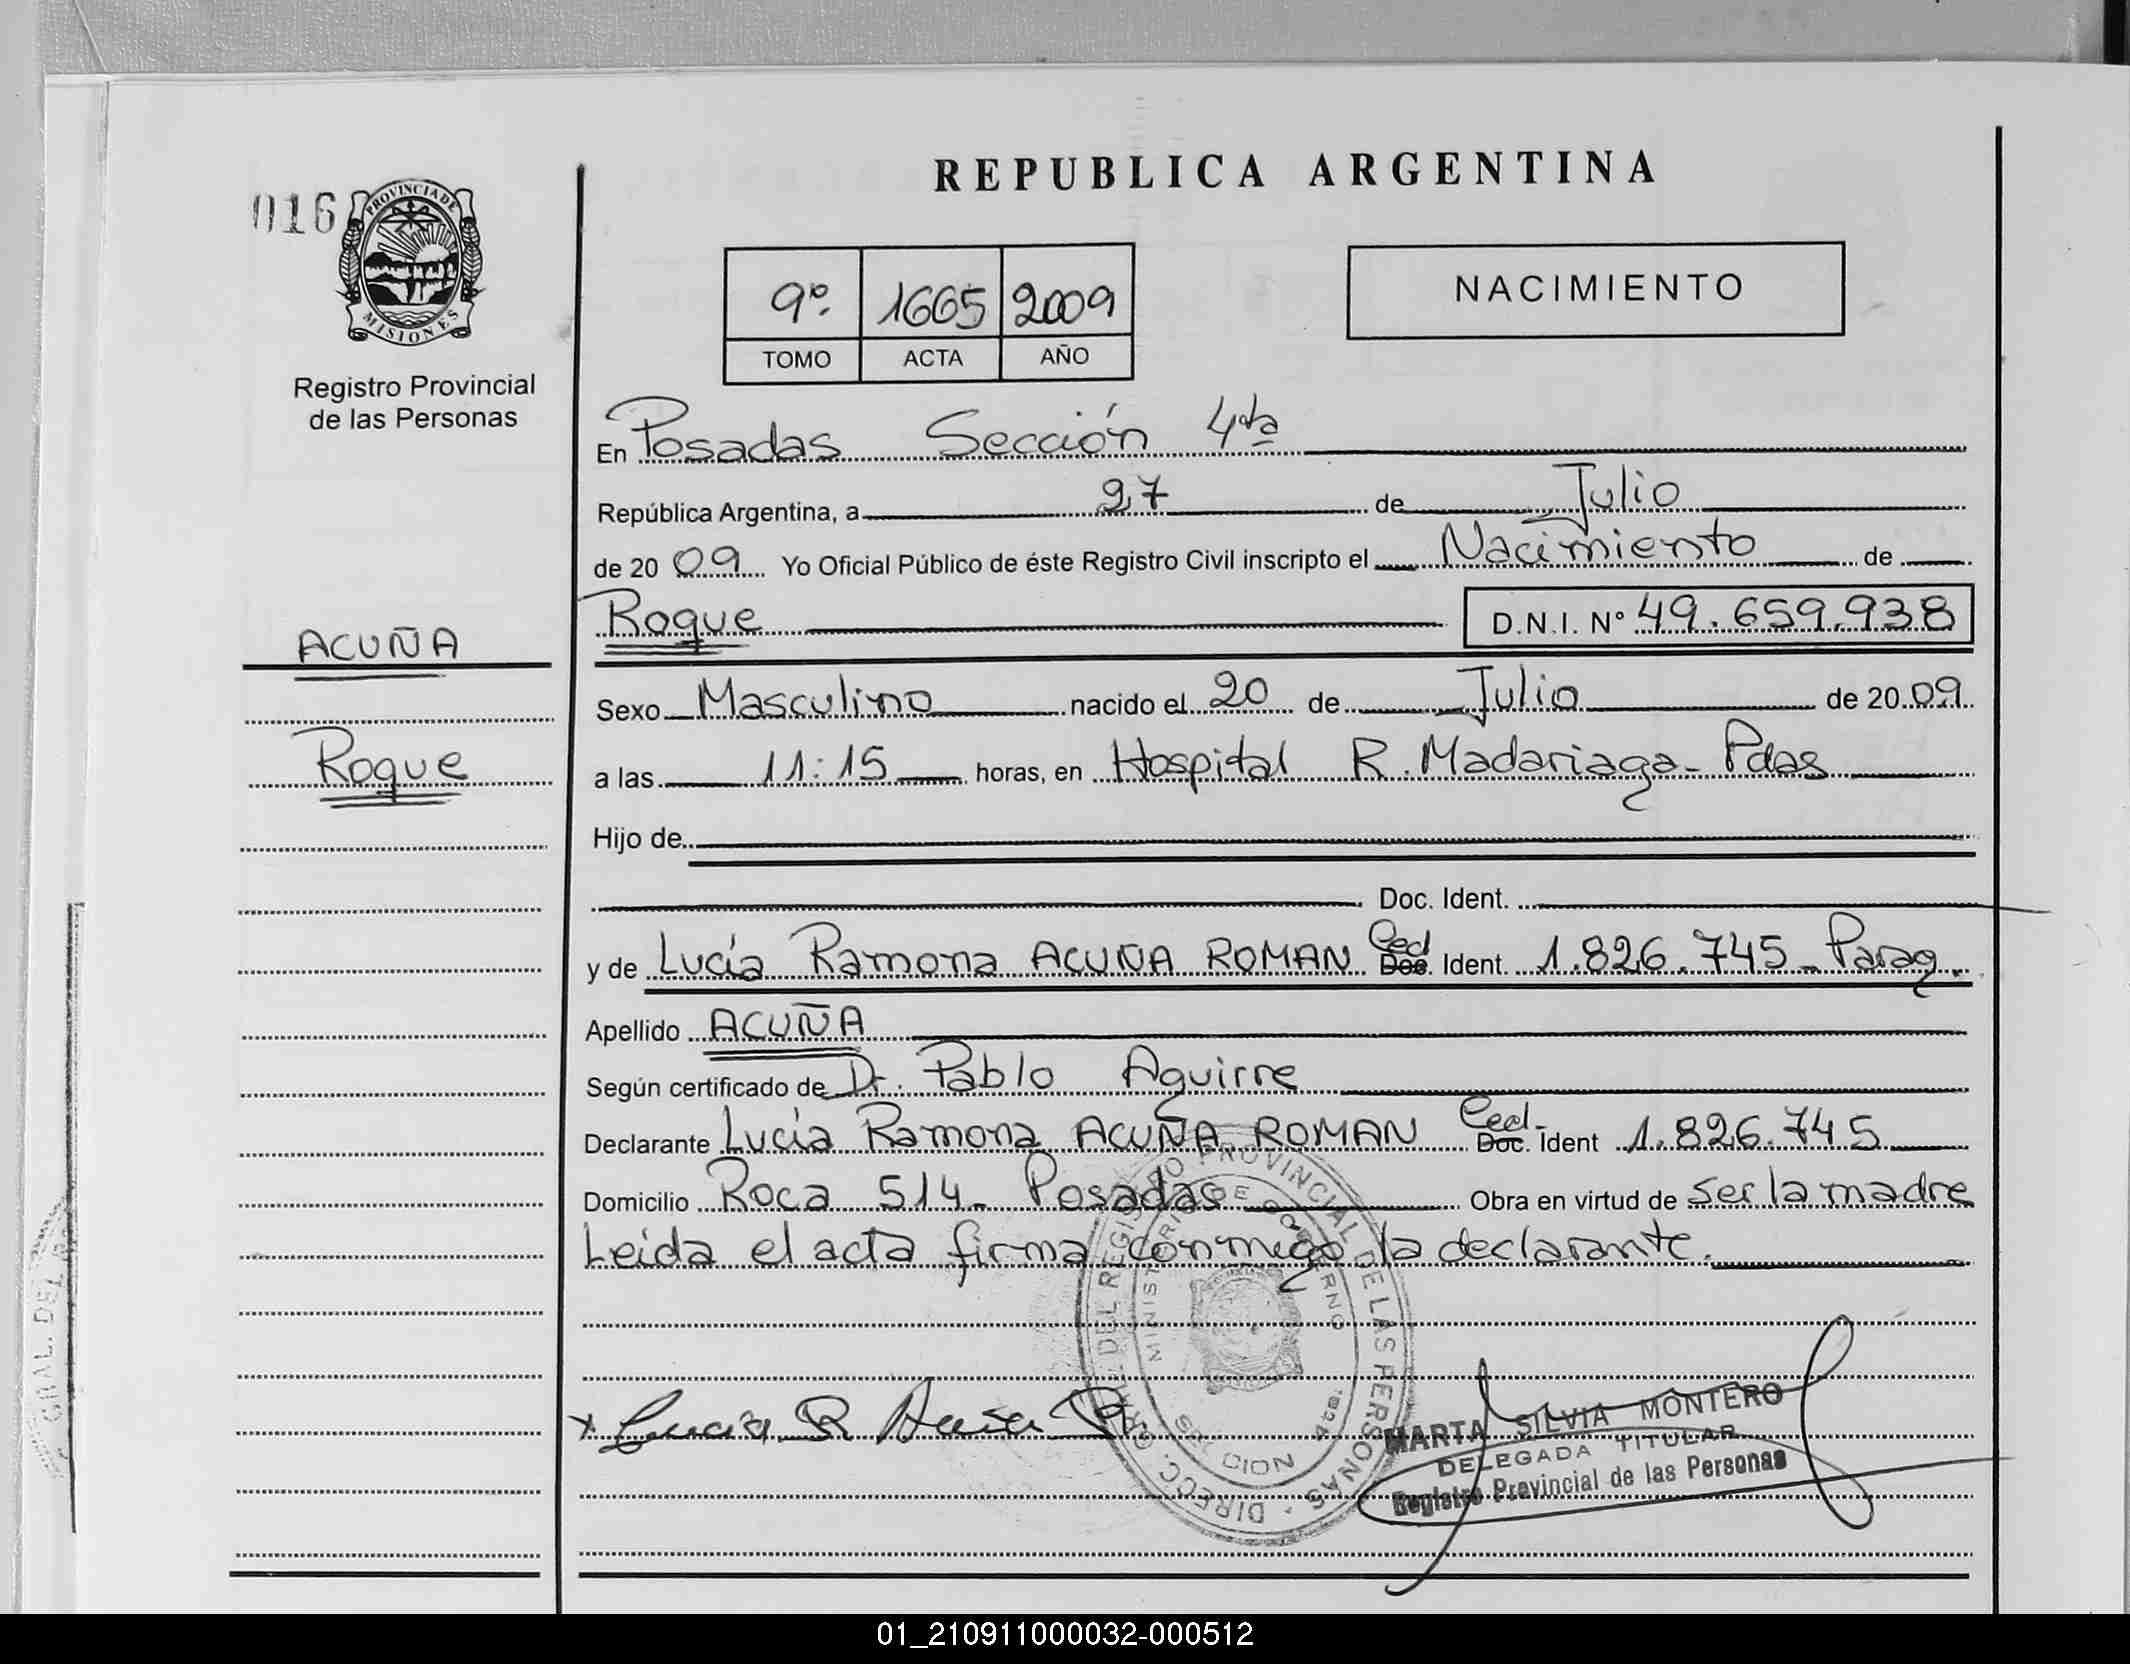 REPUBLICA ARGENTINA
016
PROVINCIA DE
MISIONES
Registro Provincial
de las Personas
9º 1665 2009
TOMO ACTA AÑO
NACIMIENTO
En Posadas Sección 4ta
República Argentina, a 27 de Julio
de 2009 Yo Oficial Público de éste Registro Civil inscripto el Nacimiento de
Roque D.N.I. Nº 49.659.938
ACUÑA
Sexo Masculino nacido el 20 de Julio de 2009
Roque
a las 11:15 horas, en Hospital R. Madariaga - Pdas
Hijo de
Doc. Ident.
y de Lucía Ramona ACUÑA ROMAN Ced Doc. Ident. 1.826.745 - Parag.
Apellido ACUÑA
Según certificado de Dr. Pablo Aguirre
Declarante Lucía Ramona ACUÑA ROMAN Ced. Doc. Ident 1.826.745
Domicilio Roca 514 - Posadas Obra en virtud de ser la madre
Leida el acta firma conmigo la declarante.
DIRECC. GRAL. DEL REGISTRO PROVINCIAL DE LAS PERSONAS
MINISTERIO DE GOBIERNO
SECCION 4ta
GRAL. DEL
x Lucia R Acuña R
MARTA SILVIA MONTERO
DELEGADA TITULAR
Registro Provincial de las Personas
01_210911000032-000512